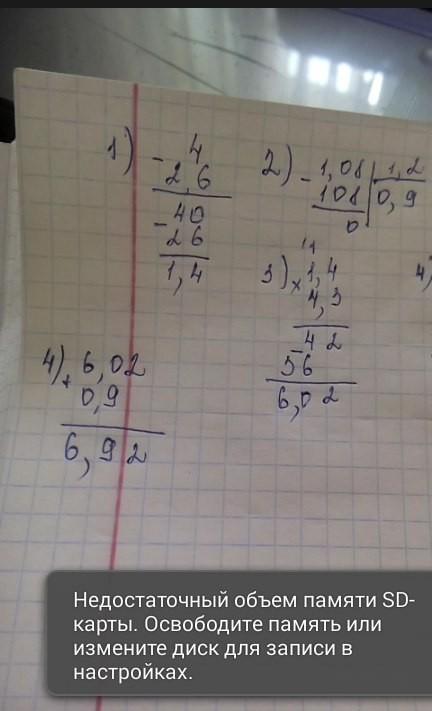 1) - 4
2,6
- 40
26
1,4
2) - 1,08 | 1,2
108 | 0,9
0
11
3) x 1,4
4,3
- 42
56
6,02
4)
4) + 6,02
0,9
6,92
Недостаточный объем памяти SD-
карты. Освободите память или
измените диск для записи в
настройках.